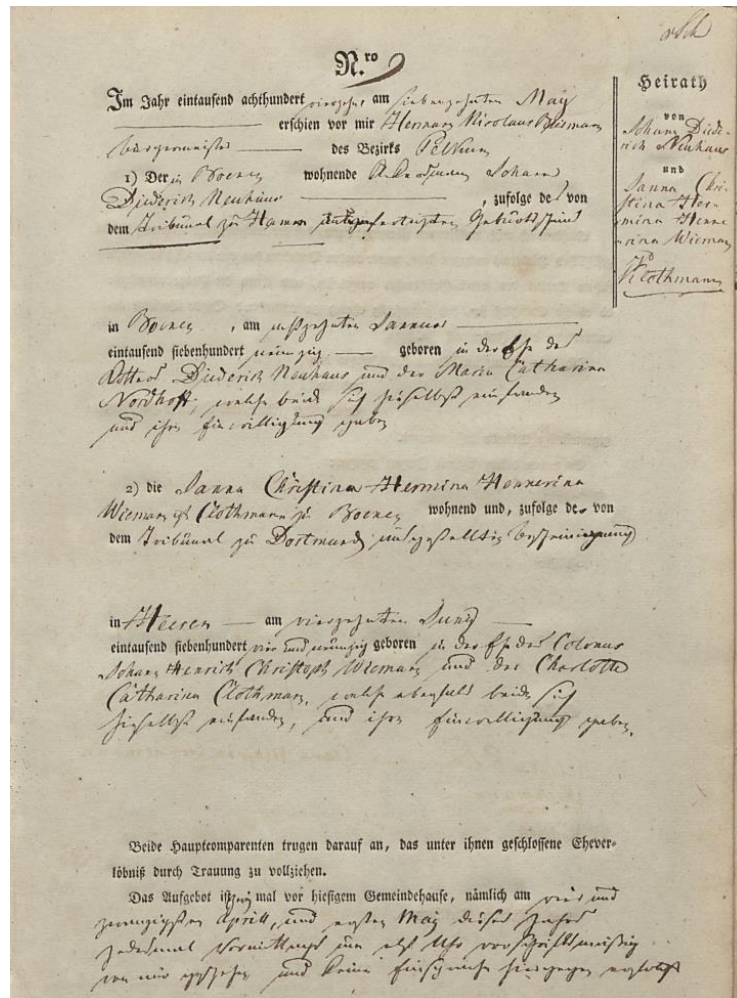 N.ro 9
Im Jahr eintausend achthundert vierzehn, am siebenzehnten May
erschien vor mir Hermann Nicolaus
bürgermeister des Bezirks Pelkum
1) Der in Boenen wohnende Johann
Diederich Neuhaus, zufolge des von
dem Tribunal zu Hamm Geburtsschein
in Boenen, am Januar
eintausend siebenhundert neunzig geboren in der Ehe des
Diederich Neuhaus und der Maria Catharina
Nordhoff, welche beide sich hieselbst einfanden
und ihre Einwilligung gaben
2) die Janna Christina Hermina Hennerina
Wiemann gt Clothmann zu Boenen wohnend und, zufolge der von
dem Tribunal zu Dortmund ausgestellten bescheinigung
in Heeren am vierzehnten Juny
eintausend siebenhundert vier und neunzig geboren in der Ehe des Colonus
Johann Henrich Christoph Wiemann und der Charlotte
Catharina Clothmann, welche ebenfals beide sich
hieselbst einfanden, und ihre Einwilligung gaben.
Beide Hauptcomparenten trugen darauf an, das unter ihnen geschlossene Ehever-
löbniß durch Trauung zu vollziehen.
Das Aufgebot ist zwey mal vor hiesigem Gemeindehause, nämlich am vier und
zwanzigsten Aprill, und ersten May dieses Jahrs
jedesmal Vormittags um elf Uhr vorschriftsmäßig
von mir geschehen und keine Einsprache hiergegen erfolgt
Heirath
von
Johann Diede-
rich Neuhaus
und
Janna Chri-
stina Her-
mina Henne
rina Wiemann
Klothmann